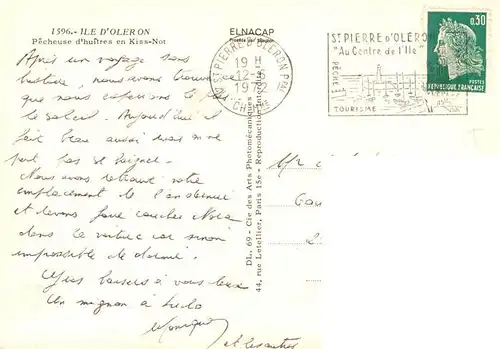 1596.- ILE D'OLERON
Pêcheuse d'huîtres en Kiss-Not
ELNACAP
ST PIERRE D'OLERON PAL
19 H
12-6
1972
CH. MME
ST PIERRE D'OLERON
"Au Centre de l'Ile"
PÊCHE
TOURISME
0,30
POSTES
REPUBLIQUE FRANÇAISE
Après un voyage sans
histoire, nous avons
que nous
le soleil. Aujourd'hui il
fait beau aussi mais on ne
peut pas se baigner.
Nous avons retrouvé notre
emplacement de l'an dernier
et devons faire coucher
dans la voiture car sinon
impossible de dormir.
baisers à vous tous
Un mignon à
Monique
DL. 69 - Cie des Arts Photomécaniques
44, rue Letellier, Paris 15e - Reproduction